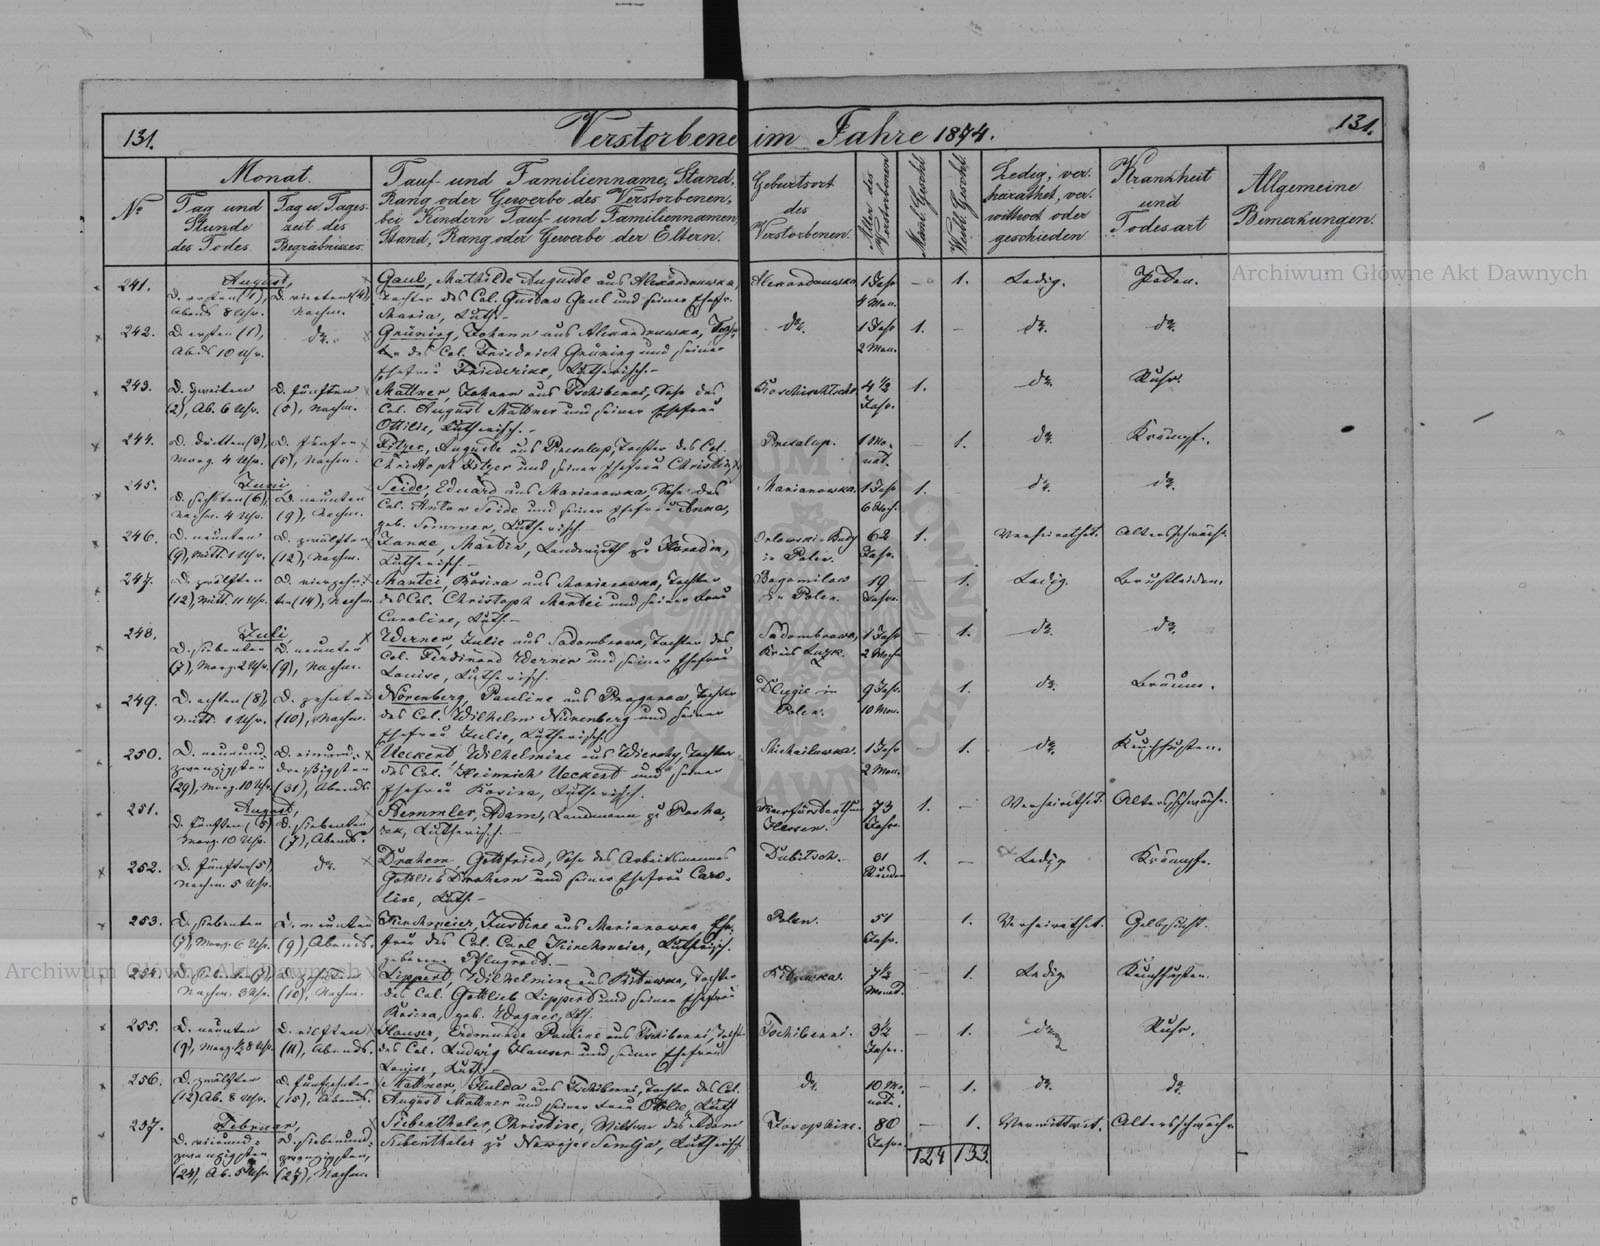 131.
Verstorbene im Jahre 1874.
131.
№
Monat.
Tag und Stunde des Todes
Tag u. Tageszeit des Begräbnisses.
Tauf- und Familienname, Stand,
Rang oder Gewerbe des Verstorbenen,
bei Kindern Tauf- und Familiennamen,
Stand, Rang oder Gewerbe der Eltern.
Geburtsort des Verstorbenen.
Alter des Verstorbenen
Mänl. Geschl.
Weibl. Geschl.
Ledig, verheirathet, verwittwet oder geschieden
Krankheit und Todesart
Allgemeine Bemerkungen.
241.
August,
D. ersten (1), D. vierten (4),
Abends 8 Uhr. Nachm.
Gaul, Mathilde Auguste aus Alexandruwka,
Tochter des Col. Gustav Gaul und seiner Ehefr.
Maria, Luth.
Alexandruwka
1 Jahr
4 Mon.
— 1. Ledig. Pocken.
242.
D. ersten (1), do.
Abds 10 Uhr.
Grüning, Johann aus Alexandruwka,
des Col. Friedrich Grüning und seiner
Ehefrau Friederike, Lutherisch.
do. 1 Jahr 1. — do. do.
2 Mon.
243.
D. zweiten D. fünften
(2), Ab. 6 Uhr. (5), Nachm.
Mattner, Johann aus Tschiberri, Sohn des
Col. August Mattner und seiner Ehefrau
Ottilie, Lutherisch.
4 1/2 Jahr. 1. do. Ruhr.
244.
D. dritten (3), D. fünften
Morg. 4 Uhr. (5), Nachm.
Fitzer, Auguste aus Presalup, Tochter des Col.
Christoph Fitzer und seiner Ehefrau
Presalup. 1 Monat. — 1. do. Krämpf.
245.
Juni,
D. sechsten (6), D. neunten
Nachm. 4 Uhr. (9), Nachm.
Seide, Eduard aus Marianowka, Sohn des
Col. Anton Seide und seiner Ehefrau Anna,
geb. Sommer, Lutherisch
Marianowka. 1 Jahr 1. do. do.
6 Woch.
246.
D. neunten D. zwölften
(9), Mitt. 1 Uhr. (12), Nachm.
Janke, Martin, Landwirth zu
Lutherisch.
in Polen. 62 Jahr. 1. Verheirathet. Altersschwäche
247.
D. zwölften D. vierzehnten
(12), Mitt. 11 Uhr. (14), Nachm.
Mantei, Rosina aus Marianowka, Tochter
des Col. Christoph Mantei und seiner Frau
Caroline, Luth.
Bogomilow in Polen. 19 Jahre. — 1. Ledig. Brustleiden.
248.
Juli,
D. siebenten D. neunten
(7), Morg. 2 Uhr. (9), Nachm.
Werner, Julie aus Sadombrowa, Tochter des
Col. Ferdinand Werner und seiner Ehefrau
Louise, Lutherisch.
Sadombrowa, Kreis Luzk. 1 Jahr — 1. do. do.
2 Woch.
249.
D. achten (8), D. zehnten
Mitt. 1 Uhr. (10), Nachm.
Nörenberg, Pauline aus Tochter
des Col. Wilhelm Nörenberg und seiner
Ehefrau Julie, Lutherisch.
Dlugie in Polen. 9 Jahr. 1. do. Bräune.
10 Mon.
250.
D. neunundzwanzigsten D. einunddreißigsten
(29), Morg. 10 Uhr. (31), Abends.
Ueckert, Wilhelmine aus Tochter
des Col. Heinrich Ueckert und seiner
Ehefrau Rosina, Lutherisch.
Michailuwka. 1 Jahr 1. do. Keuchhusten.
2 Mon.
251.
August,
D. fünften (5) D. siebenten
Morg. 10 Uhr. (7), Abends.
Remmler, Adam, Landmann zu
Lutherisch.
Kurfürstenthum Hessen. 73 Jahre. 1. — Verheirathet. Altersschwäche.
252.
D. fünften (5) do.
Nachm. 5 Uhr.
Draheim, Gottfried, Sohn des Arbeitsmannes
Gottlieb Draheim und seiner Ehefrau Caroline, Luth.
Dubitsch. Stunden 1. — Ledig. Krämpfe.
253.
D. siebenten D. neunten
(7), Morg. 6 Uhr. (9), Abends.
Kirchmeier, Justine aus Marianowka, Ehefrau des Col. Carl Kirchmeier, Lutherisch.
geborene Pflugradt.
Polen. 51 Jahr. 1. Verheirathet. Gelbsucht.
254.
D. siebenten (7) D. zehnten
Nachm. 3 Uhr. (10), Nachm.
Lippert, Wilhelmine aus Kituwka, Tochter
des Col. Gottlieb Lippert und seiner Ehefrau
Rosina, geb. Wagner, Lth.
Kituwka. 7 1/2 Monat. — 1. Ledig Keuchhusten.
255.
D. neunten D. eilften
(9), Morg. 1/2 8 Uhr. (11), Abends.
Hauser, Erdmunde Pauline aus Tschiberri, Tocht.
des Col. Ludwig Hauser und seiner Ehefrau
Louise, Luth.
Tschiberri. 3 1/2 Jahre. — 1. do. Ruhr.
256.
D. zwölften D. fünfzehnten
(12) Ab. 8 Uhr. (15), Abends.
Mattner, Hulda aus Tschiberri, Tochter des Col.
August Mattner und seiner Frau Ottilie, Luth
do. 10 Monate. — 1. do. do.
257.
Februar,
D. vierundzwanzigsten D. siebenundzwanzigsten,
(24), Ab. 5 Uhr. (27), Nachm.
Siebenthaler, Christine, Wittwe des Adam
Siebenthaler zu Nowaja Semlja, Lutherisch
Josephine. 80 Jahre. — 1. Verwittwet. Altersschwäche
124 133.
Archiwum Główne Akt Dawnych
Archiwum Główne Akt Dawnych